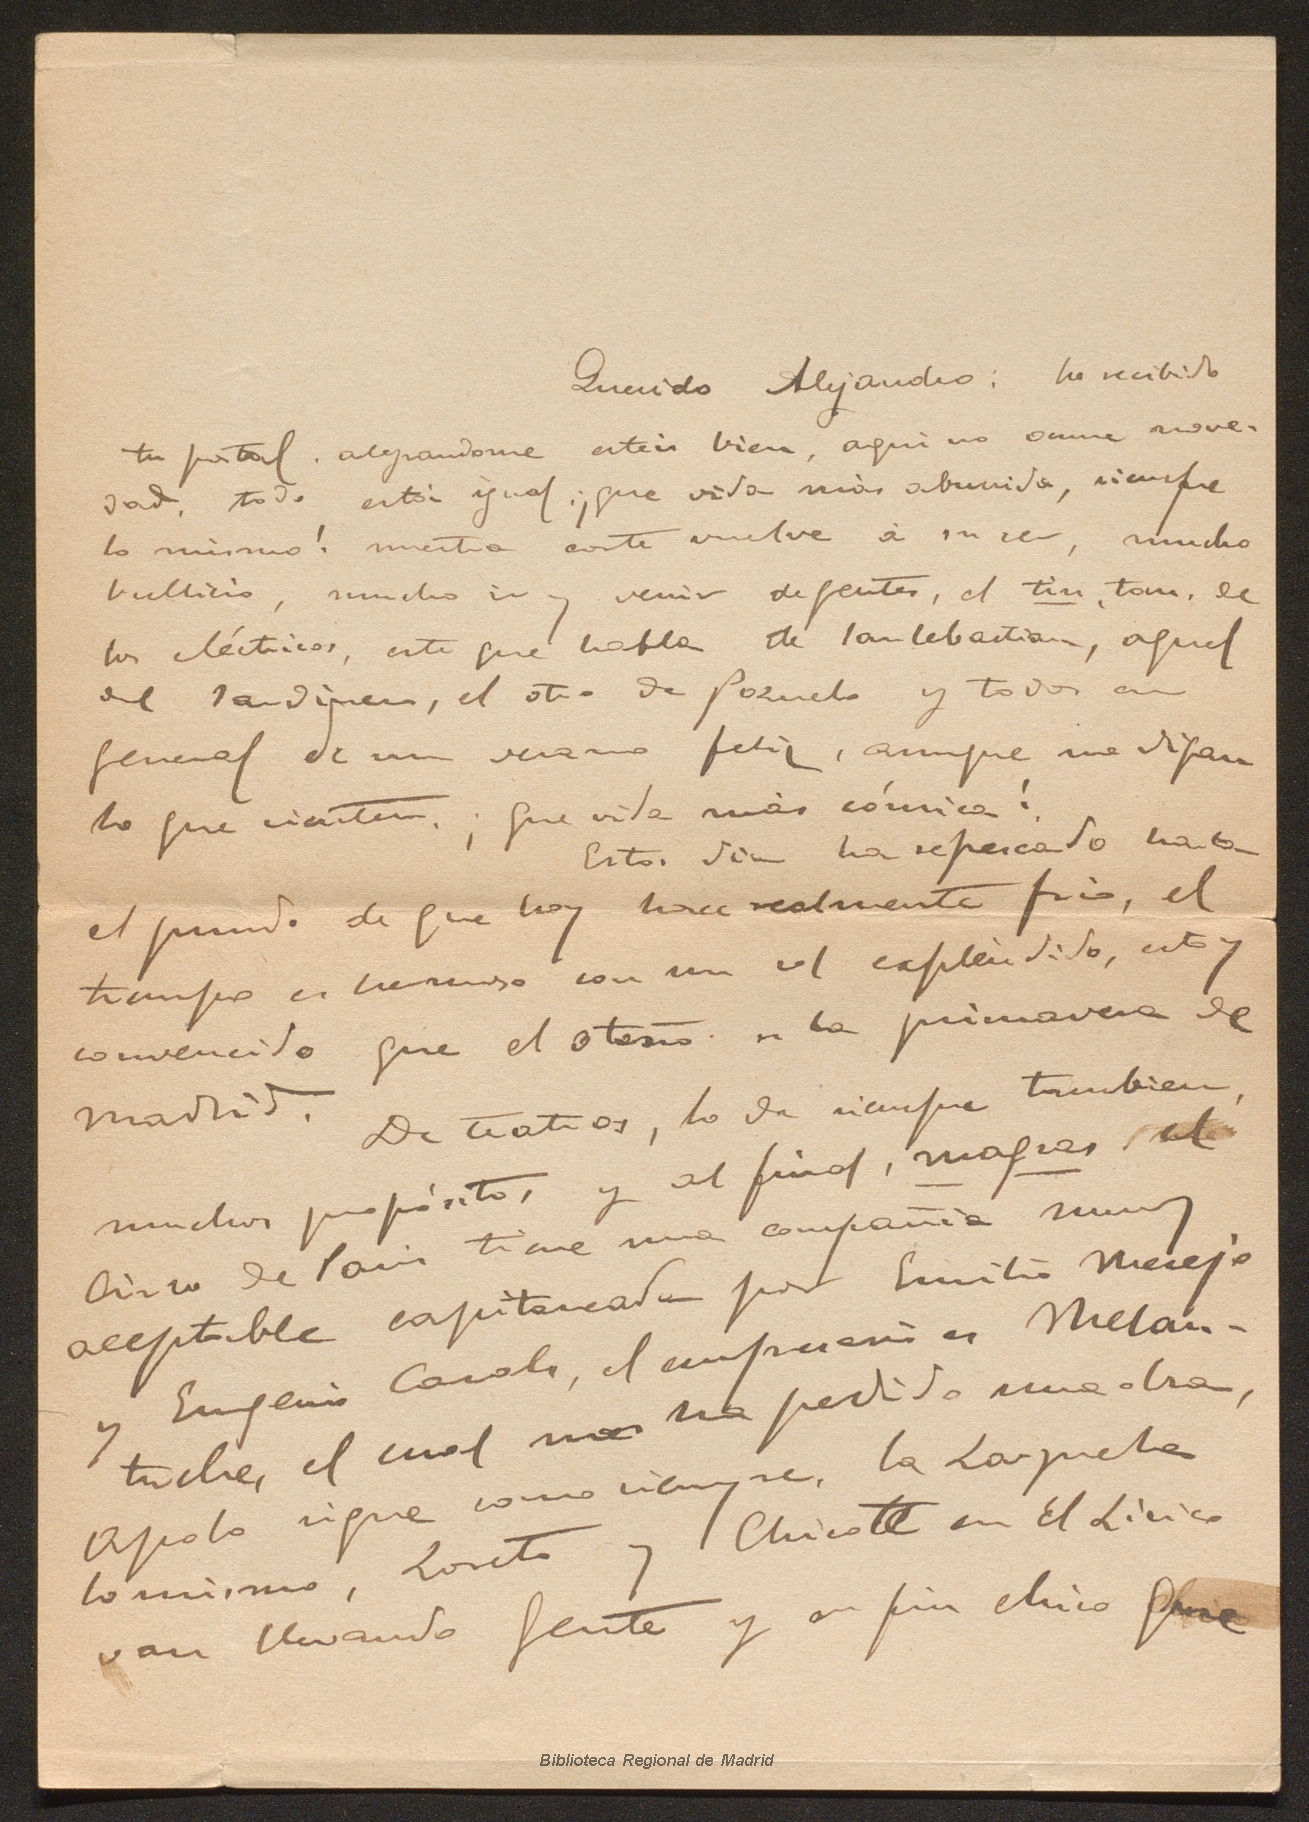 Querido Alejandro: he recibido
tu postal, alegrandome esteis bien, aqui no ocurre nove-
dad, todo está igual, ¡que vida más aburrida, siempre
lo mismo! nuestra corte vuelve á su ser, mucho
bullicio, mucho ir y venir de gentes, el tin, tan, de
los eléctricos, este que habla de San Sebastian, aquel
del Sardinero, el otro de Pozuelo y todos en
general de un verano feliz, aunque no digan
lo que sienten, ¡que vida más cómica!
Estos dias ha refrescado hasta
el punto de que hoy hace realmente frio, el
tiempo es hermoso con un sol expléndido, estoy
convencido que el otoño es la primavera de
Madrid.
De teatros, lo de siempre tambien,
muchos propósitos y al final, magras, el
Circo de Paris tiene una compañia muy
aceptable capitaneada por Emilio Mesejo
y Eugenio Casals, el empresario es Melan-
tuche, el cual nos ha pedido una obra,
Apolo sigue como siempre, la Zarzuela
lo mismo, Loreto y Chicote en El Lirico
van llevando gente y en fin chico que
Biblioteca Regional de Madrid